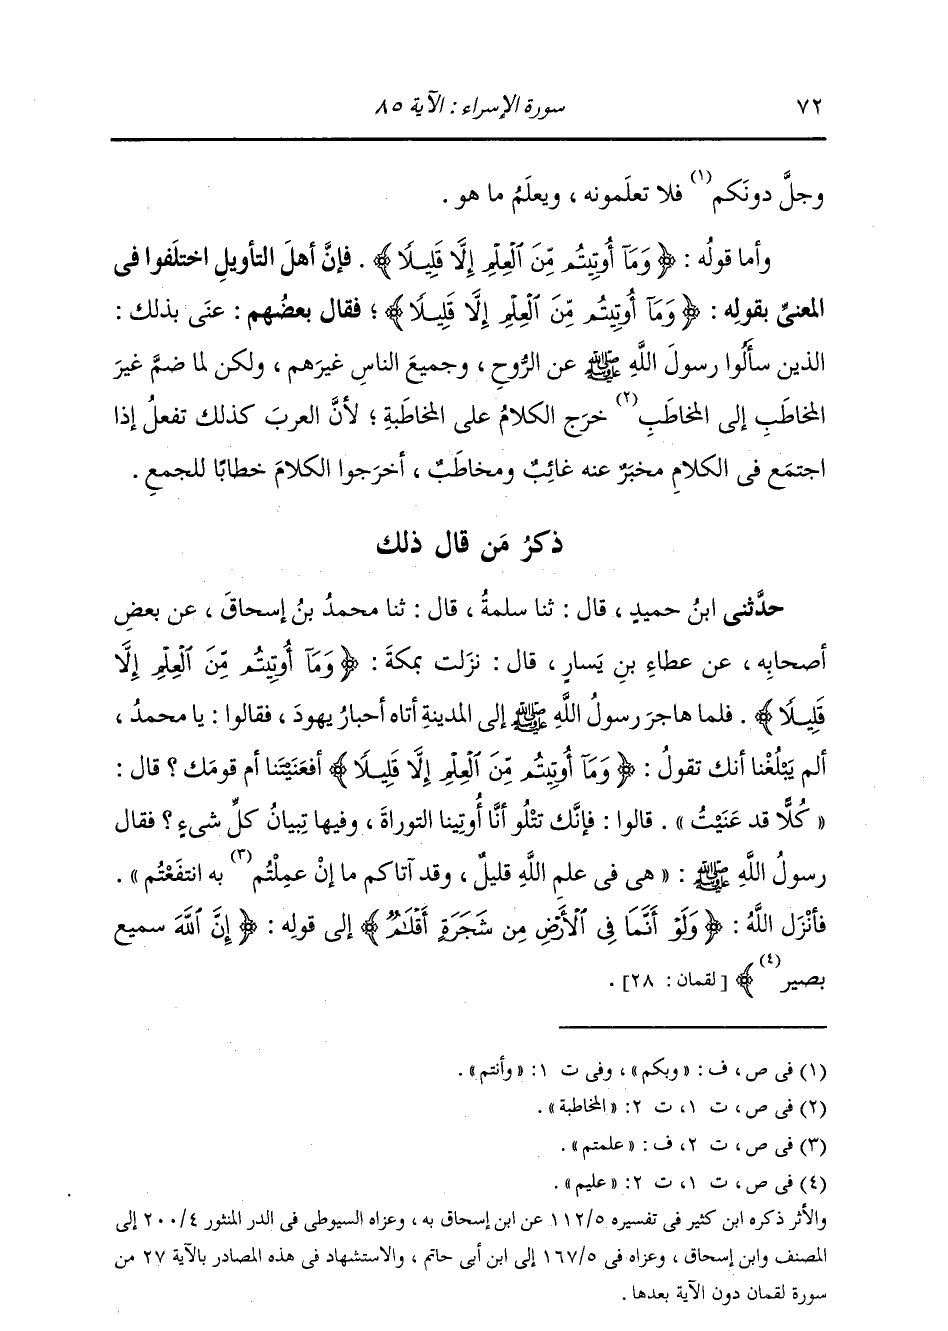 ٧٢ سورة الإسراء : الآية ٨٥
وجلَّ دونَكم(١) فلا تعلَمونه ، ويعلَمُ ما هو .
وأما قولُه : ﴿ وَمَآ أُوتِيتُم مِّنَ ٱلْعِلْمِ إِلَّا قَلِيلًا ﴾ . فإنَّ أهلَ التأويلِ اختلَفوا فى
المعنيِّ بقولِه : ﴿ وَمَآ أُوتِيتُم مِّنَ ٱلْعِلْمِ إِلَّا قَلِيلًا ﴾ ؛ فقال بعضُهم : عنَى بذلك :
الذين سأَلُوا رسولَ اللَّهِ ﷺ عن الرُّوحِ ، وجميعَ الناسِ غيرَهم ، ولكن لما ضمَّ غيرَ
المخاطَبِ إلى المخاطَبِ(٢) خرَج الكلامُ على المخاطَبةِ ؛ لأنَّ العربَ كذلك تفعلُ إذا
اجتمَع فى الكلامِ مخبَرٌ عنه غائِبٌ ومخاطَبٌ ، أخرَجوا الكلامَ خطابًا للجمعِ .
ذكرُ مَن قال ذلك
حدَّثنى ابنُ حميدٍ ، قال : ثنا سلمةُ ، قال : ثنا محمدُ بنُ إسحاقَ ، عن بعضِ
أصحابِه ، عن عطاءِ بنِ يَسارٍ ، قال : نزَلت بمكةَ : ﴿ وَمَآ أُوتِيتُم مِّنَ ٱلْعِلْمِ إِلَّا
قَلِيلًا ﴾ . فلما هاجرَ رسولُ اللَّهِ ﷺ إلى المدينةِ أتاه أحبارُ يهودَ ، فقالوا : يا محمدُ ،
ألم يَبْلُغْنا أنك تقولُ : ﴿ وَمَآ أُوتِيتُم مِّنَ ٱلْعِلْمِ إِلَّا قَلِيلًا ﴾ أفعَنَيْتَنا أم قومَك ؟ قال :
« كُلًّا قد عَنَيْتُ » . قالوا : فإنَّك تتْلُو أنَّا أُوتِينا التوراةَ ، وفيها تِبيانُ كلِّ شىءٍ ؟ فقال
رسولُ اللَّهِ ﷺ : « هى فى علمِ اللَّهِ قليلٌ ، وقد آتاكم ما إنْ عمِلْتُم(٣) به انتفَعْتُم » .
فأنْزَل اللَّهُ : ﴿ وَلَوْ أَنَّمَا فِى ٱلْأَرْضِ مِن شَجَرَةٍ أَقْلَـٰمٌ ﴾ إلى قولِه : ﴿ إِنَّ ٱللَّهَ سميع
بصير(٤) ﴾ [ لقمان : ٢٨] .
(١) فى ص ، ف : « وبكم » ، وفى ت ١ : « وأنتم » .
(٢) فى ص ، ت ١ ، ت ٢ : « المخاطبة » .
(٣) فى ص ، ت ٢ ، ف : « علمتم » .
(٤) فى ص ، ت ١ ، ت ٢ : « عليم » .
والأثر ذكره ابن كثير فى تفسيره ١١٢/٥ عن ابن إسحاق به ، وعزاه السيوطى فى الدر المنثور ٢٠٠/٤ إلى
المصنف وابن إسحاق ، وعزاه فى ١٦٧/٥ إلى ابن أبى حاتم ، والاستشهاد فى هذه المصادر بالآية ٢٧ من
سورة لقمان دون الآية بعدها .